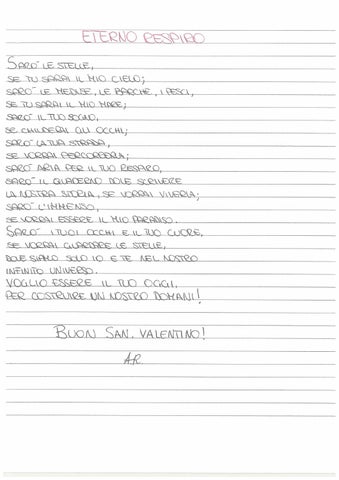 ETERNO RESPIRO
SARO' LE STELLE,
SE TU SARAI IL MIO CIELO;
SARO' LE MEDUSE, LE BARCHE, I PESCI,
SE TU SARAI IL MIO MARE;
SARO' IL TUO SOGNO,
SE CHIUDERAI GLI OCCHI;
SARO' LA TUA STRADA,
SE VORRAI PERCORRERLA;
SARO' ARIA PER IL TUO RESPIRO,
SARO' IL QUADERNO DOVE SCRIVERE
LA NOSTRA STORIA, SE VORRAI VIVERLA;
SARO' L'IMMENSO,
SE VORRAI ESSERE IL MIO PARADISO.
SARO' I TUOI OCCHI E IL TUO CUORE,
SE VORRAI GUARDARE LE STELLE,
DOVE SIAMO SOLO IO E TE NEL NOSTRO
INFINITO UNIVERSO.
VOGLIO ESSERE IL TUO OGGI,
PER COSTRUIRE UN NOSTRO DOMANI!
BUON SAN. VALENTINO!
A.R.